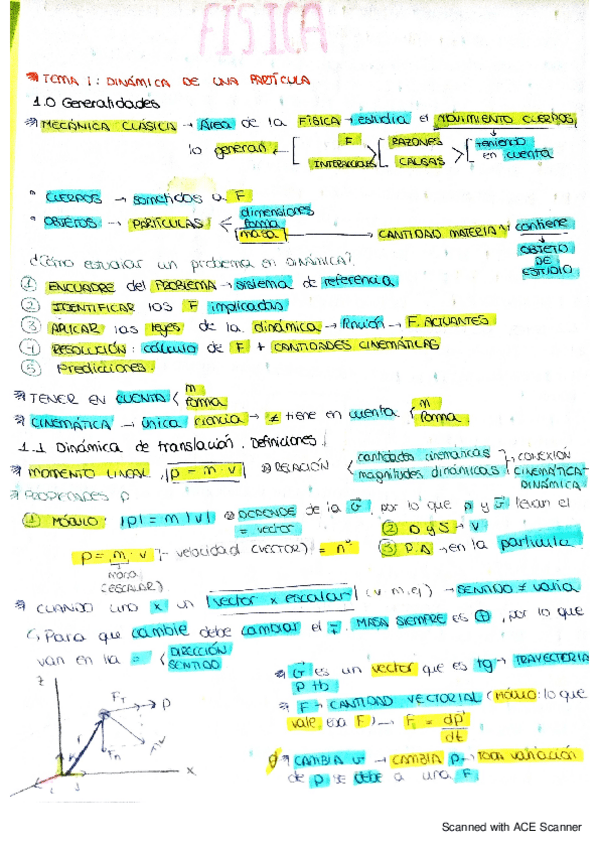 FÍSICA
TEMA 1: DINÁMICA DE UNA PARTÍCULA
1.0 Generalidades
MECÁNICA CLÁSICA → Área de la FÍSICA → estudia el MOVIMIENTO CUERPOS
lo generan ← [ F INTERACCIONES > [ RAZONES CAUSAS > [ teniendo en cuenta
CUERPOS → sometidos a F
OBJETOS → PARTÍCULAS < dimensiones forma masa → CANTIDAD MATERIA: contiene OBJETO DE ESTUDIO
¿Cómo estudiar un problema en DINÁMICA?
1 ENCUADRE del PROBLEMA → sistema de referencia
2 IDENTIFICAR las F implicadas
3 APLICAR las leyes de la dinámica → Función → F. ACTUANTES
4 RESOLUCIÓN: cálculo de F + CANTIDADES CINEMÁTICAS
5 Predicciones.
TENER EN CUENTA < m forma
CINEMÁTICA → única ciencia → ≠ tiene en cuenta { m forma.
1.1 Dinámica de translación. Definiciones
MOMENTO LINEAL |p = m · v| RELACIÓN < cantidades cinemáticas magnitudes dinámicas } CONEXIÓN CINEMÁTICA - DINÁMICA
PROPIEDADES p
1 MÓDULO: |p| = m |v| DEPENDE de la v, por lo que p y v llevan el
= vector 2 D y S → v
p = m · v → velocidad (VECTOR) = nº 3 P.A → en la partícula.
masa
(ESCALAR)
CUANDO uno x un |vector x escalar| (v m.ej) → SENTIDO ≠ varia
Para que cambie debe cambiar el MASA SIEMPRE es +, por lo que
van en la = < DIRECCIÓN SENTIDO
v es un vector que es tg → TRAYECTORIA
F → CANTIDAD VECTORIAL (MÓDULO: lo que
vale esa F) → F = dp/dt
CAMBIA v → CAMBIA p → Toda variación
de p se debe a una F
z
F
p
x
Scanned with ACE Scanner